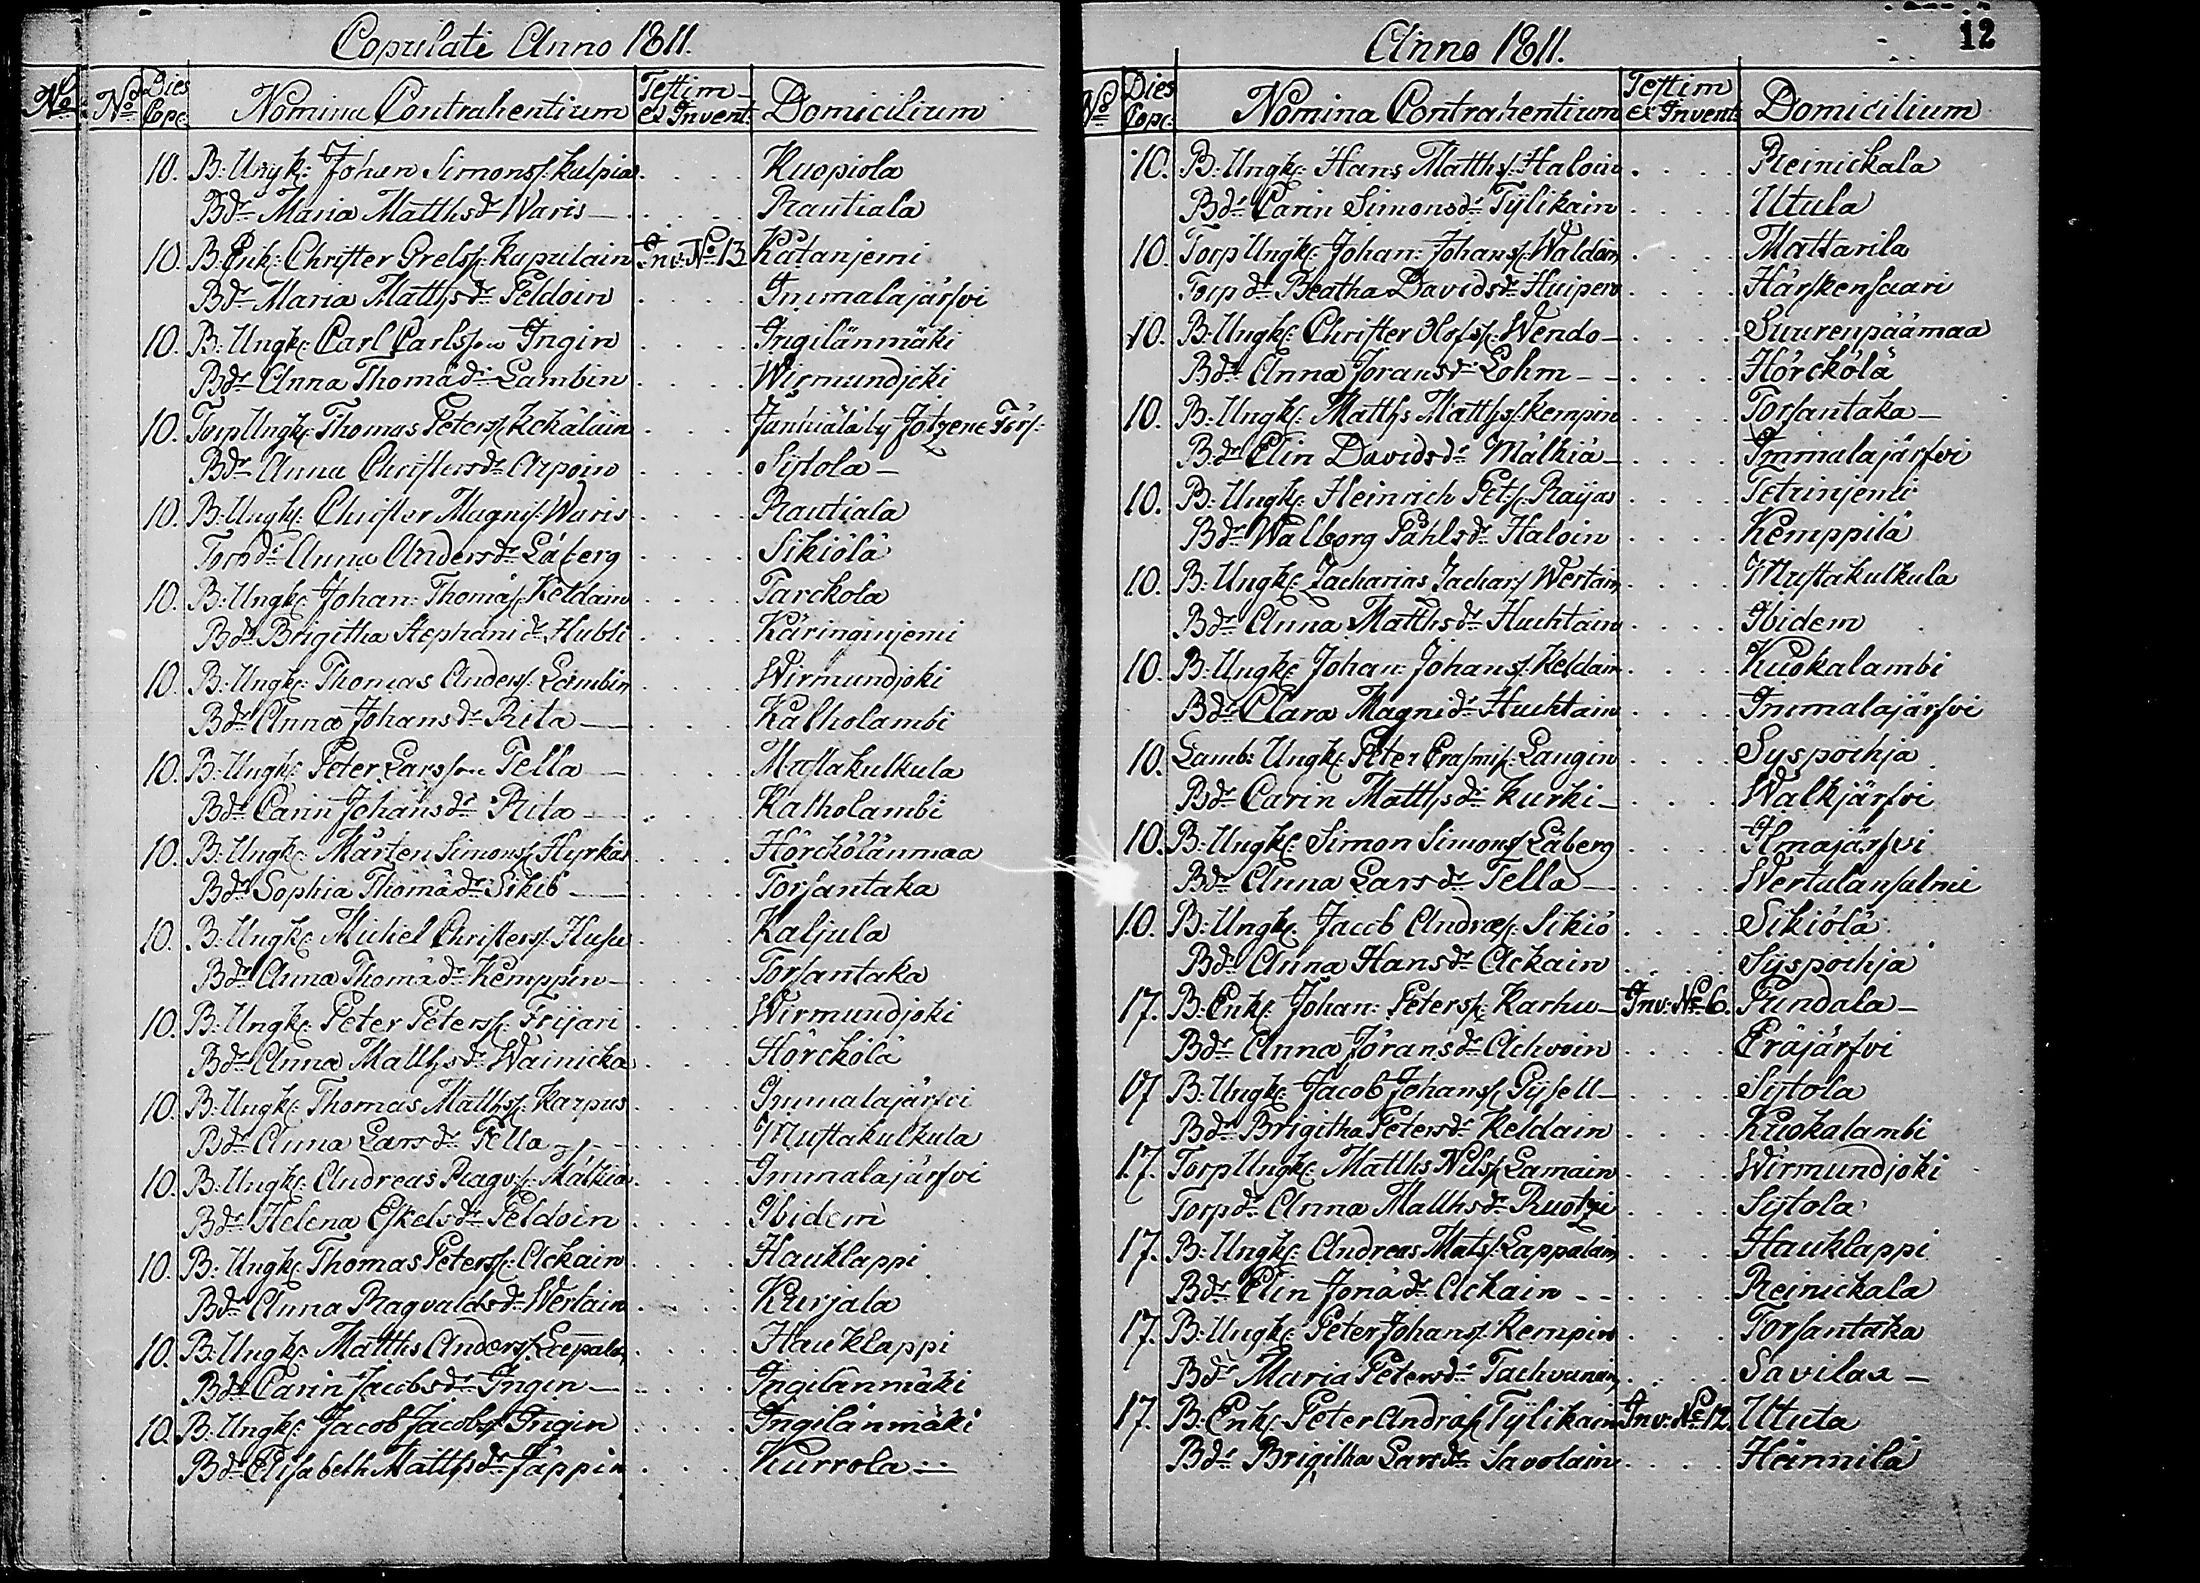 Copulati Anno 1811.
No. No. Dies Cop: Nomina Contrahentium Testim et Invent: Domicilium
10. B: Ungk: Johan Simonss: Kulpia Kuopiola
Bdr Maria Matthsdr Waris Rautiala
10. B: Enk: Christer Grelss: Kupulain Inv: No 13 Kätänjemi
Bdr Maria Matthsdr Peldoin Immalajärfvi
10. B: Ungk: Carl Carlsson Ingin Ingilänmäki
Bdr Anna Thomædr Lambin Wirmundjoki
10. Torp Ungk: Thomas Peterss: Kekäläin by Förs:
Bdr Anna Christersdr Arpoin Sistola
10. B: Ungk: Christer Magnis: Waris Rautiala
Torpdr Anna Andersdr Låberg Sikiölä
10. B: Ungk: Johan: Thomæs: Keldain Tarckola
Bdr Brigitha Stephanidr Hubli Käringinjemi
10. B: Ungk: Thomas Anderss: Lambin Wirmundjoki
Bdr Anna Johansdr Rita Kalholambi
10. B: Ungk: Peter Larsson Tella Mustakulkula
Bdr Carin Johansdr Rita Kalholambi
10. B: Ungk: Mårten Simonss: Hyrkäs Hörckölänmaa
Bdr Sophia Thomædr Sikiö Torsantaka
10. B: Ungk: Michel Christerss: Husu Kaljula
Bdr Anna Thomædr Kemppin Torsantaka
10. B: Ungk: Peter Peterss: Frijari Wirmundjoki
Bdr Anna Matthsdr Wainicka Hörckölä
10. B: Ungk: Thomas Matthss: Karpus Immalajärfvi
Bdr Anna Larsdr Tella Mustakulkula
10. B: Ungk: Andreas Ragvs: Mälkiä Immalajärfvi
Bdr Helena Eskelsdr Peldoin Ibidem
10. B: Ungk: Thomas Peterss: Ackain Hauklappi
Bdr Anna Ragvaldsdr Wertain Kurjala
10. B: Ungk: Matths Anderss: Hauklappi
Bdr Carin Jacobsdr Ingin Ingilänmäki
10. B: Ungk: Jacob Jacobss: Ingin Ingilänmäki
Bdr Elisabeth Matthsdr Jäppin Kurrola
Anno 1811.
12
No. Dies Cop: Nomina Contrahentium Testim et Invent: Domicilium
10. B: Ungk: Hans Matths: Haloin Reinickala
Bdr Carin Simonsdr Tylikain Utula
10. Torp Ungk: Johan: Johanss: Waldain Mattarila
Torpdr Beatha Davidsdr Huiperо Härskensaari
10. B: Ungk: Christer Olofss: Wendo Suurenpäämaa
Bdr Anna Jöransdr Lohm Hörckölä
10. B: Ungk: Matths Matthss: Kempin Torsantaka
Bdr Elin Davidsdr Mälkiä Immalajärfvi
10. B: Ungk: Heinrich Pets: Raijas Tetrinjemi
Bdr Walborg Påhlsdr Haloin Kemppilä
10. B: Ungk: Zacharias Zachars: Wertain Mustakulkula
Bdr Anna Matthsdr Huchtain Ibidem
10. B: Ungk: Johan: Johanss: Keldain Kuokalambi
Bdr Clara Magnidr Huchtain Immalajärfvi
10. Lamb: Ungk: Peter Erasmis: Laugin Syspoihja
Bdr Carin Matthsdr Kurki Walkjärfvi
10. B: Ungk: Simon Simonss: Låberg Ilmajärfvi
Bdr Anna Larsdr Tella Wertulansalmi
10. B: Ungk: Jacob Andræs: Sikiö Sikiölä
Bdr Anna Hansdr Ackain Syspoihja
17. B: Enk: Johan: Peterss: Karhu Inv: No 6. Pundala
Bdr Anna Jöransdr Achvoin Eräjärfvi
17 B: Ungk: Jacob Johanss: Pysell Sistola
Bdr Brigitha Petersdr Keldain Kuokalambi
17. Torp Ungk: Matths Nilss: Lamain Wirmundjoki
Torpdr Anna Matthsdr Ruotzi Sistola
17. B: Ungk: Andreas Matss: Lappalain Hauklappi
Bdr Elin Jonædr Ackain Reinickala
17. B: Ungk: Peter Johanss: Kempin Torsantaka
Bdr Maria Petersdr Tachvanain Savilax
17. B: Enk: Peter Andræs: Tylikain Inv: No 12. Utula
Bdr Brigitha Larsdr Savolain Hännilä